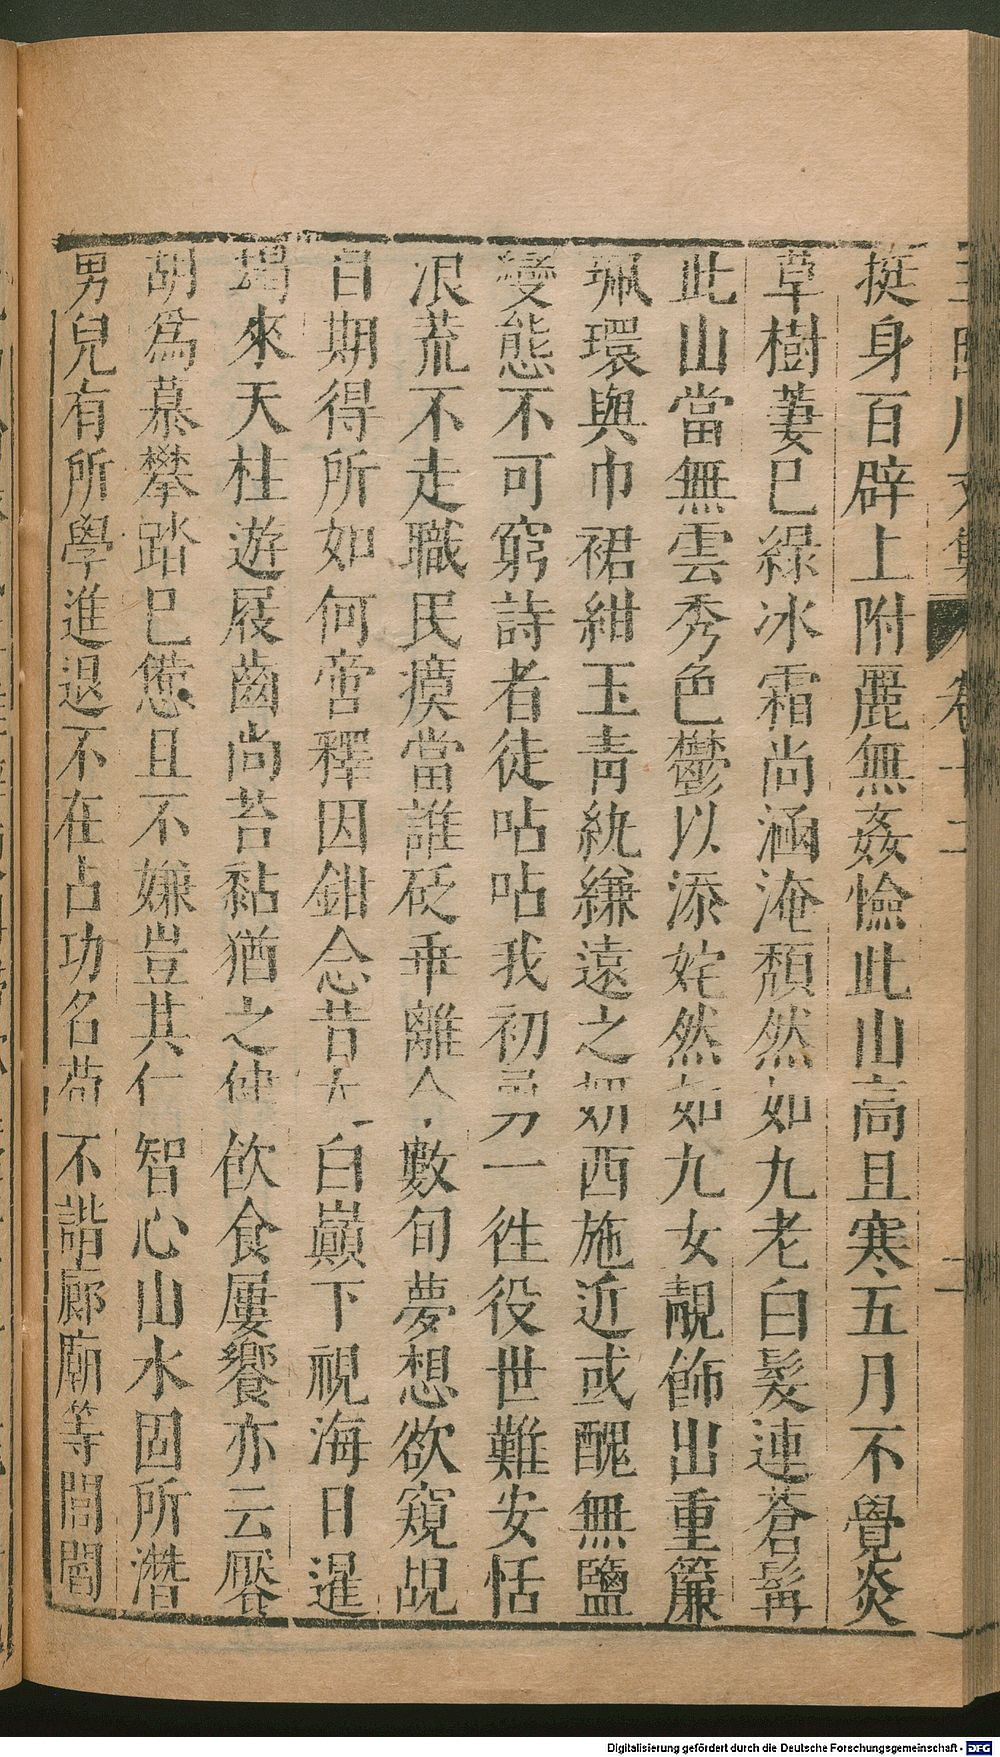 挺身百辟上附麗無姦憸此山高且寒五月不覺炎
草樹萋已綠冰霜尚涵淹頹然如九老白髮連蒼髯
此山當無雲秀色鬱以添姹然如九女靚飾出重簾
珮環與巾裙紺玉青紈縑遠之如西施近或醜無鹽
變態不可窮詩者徒呫呫我初一徃役世難安恬
浪荒不走職民瘼當誰砭乖離數旬夢想欲窺覘
日期得所如何啻釋因鉗念昔白巔下視海日暹
朅來天柱遊屐齒尚苔黏猶之飲食屢饗亦云饜
胡爲慕攀踏已憊且不嫌豈其仁智心山水固所潛
男兒有所學進退不在占功名苟不諧廊廟等閭閻
卷十二
Digitalisierung gefördert durch die Deutsche Forschungsgemeinschaft - DFG